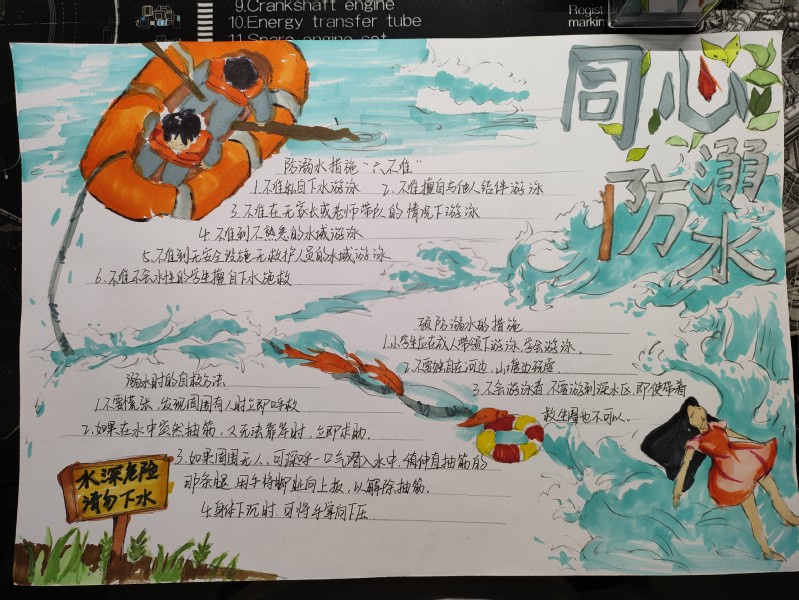 9.Crankshaft engine
10.Energy transfer tube
同心
防溺水
防溺水措施“六不准”
1.不准私自下水游泳 2.不准擅自与他人结伴游泳
3.不准在无家长或老师带队的情况下游泳
4.不准到不熟悉的水域游泳
5.不准到无安全设施无救护人员的水域游泳
6.不准不会水性的学生擅自下水施救
预防溺水的措施
1.小学生应在成人带领下游泳,学会游泳.
2.不要独自在河边、山塘边玩耍
3.不会游泳者,不要游到深水区,即使带着
救生圈也不可以.
溺水时的自救方法
1.不要慌张,发现周围有人时立即呼救
2.如果在水中突然抽筋,又无法靠岸时,立即求助.
3.如果周围无人,可深呼一口气潜入水中,伸直抽筋的
那条腿,用手将脚趾向上扳,以解除抽筋.
4.身体下沉时,可将手掌向下压
水深危险
请勿下水